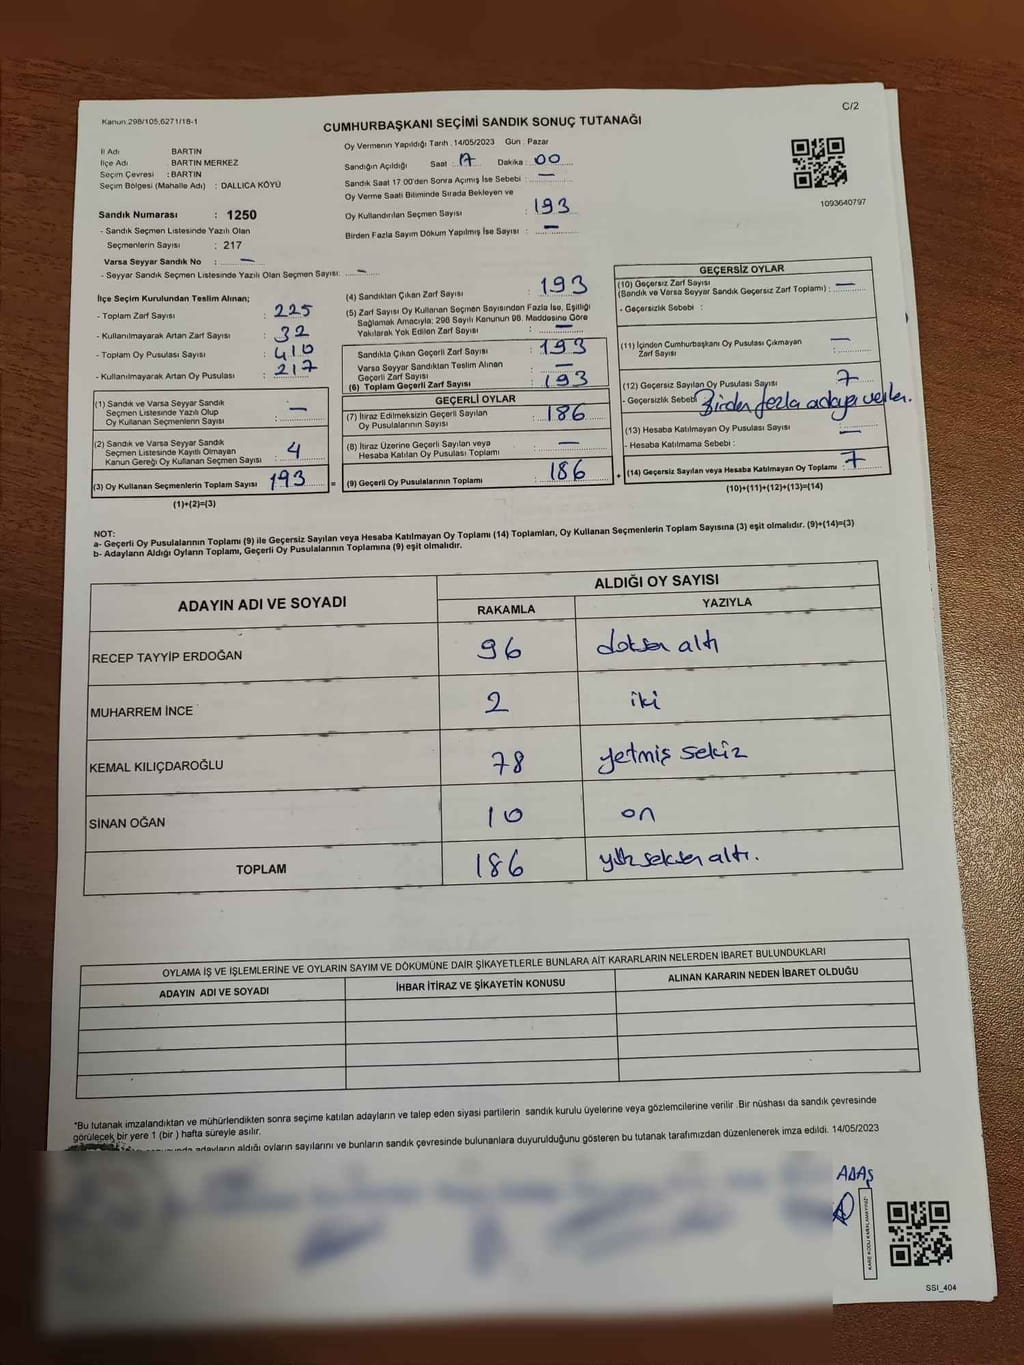 C/2
Kanun.298/105,6271/18-1
CUMHURBAŞKANI SEÇİMİ SANDIK SONUÇ TUTANAĞI
İl Adı BARTIN
İlçe Adı BARTIN MERKEZ
Seçim Çevresi : BARTIN
Seçim Bölgesi (Mahalle Adı) : DALLICA KÖYÜ
Sandık Numarası : 1250
- Sandık Seçmen Listesinde Yazılı Olan
Seçmenlerin Sayısı : 217
Varsa Seyyar Sandık No : —
- Seyyar Sandık Seçmen Listesinde Yazılı Olan Seçmen Sayısı: —
Oy Vermenin Yapıldığı Tarih : 14/05/2023 Gün : Pazar
Sandığın Açıldığı Saat : 17 Dakika : 00
Sandık Saat 17:00'den Sonra Açımış İse Sebebi : —
Oy Verme Saati Bitiminde Sırada Bekleyen ve
Oy Kullandırılan Seçmen Sayısı : 193
Birden Fazla Sayım Döküm Yapılmış İse Sayısı : —
1093640797
İlçe Seçim Kurulundan Teslim Alınan;
- Toplam Zarf Sayısı : 225
- Kullanılmayarak Artan Zarf Sayısı : 32
- Toplam Oy Pusulası Sayısı : 410
- Kullanılmayarak Artan Oy Pusulası : 217
(1) Sandık ve Varsa Seyyar Sandık
Seçmen Listesinde Yazılı Olup
Oy Kullanan Seçmenlerin Sayısı : —
(2) Sandık ve Varsa Seyyar Sandık
Seçmen Listesinde Kayıtlı Olmayan
Kanun Gereği Oy Kullanan Seçmen Sayısı : 4
(3) Oy Kullanan Seçmenlerin Toplam Sayısı : 193
(1)+(2)=(3)
(4) Sandıktan Çıkan Zarf Sayısı : 193
(5) Zarf Sayısı Oy Kullanan Seçmen Sayısından Fazla İse, Eşitliği
Sağlamak Amacıyla; 298 Sayılı Kanunun 98. Maddesine Göre
Yakılarak Yok Edilen Zarf Sayısı : —
Sandıkta Çıkan Geçerli Zarf Sayısı : 193
Varsa Seyyar Sandıktan Teslim Alınan
Geçerli Zarf Sayısı : —
(6) Toplam Geçerli Zarf Sayısı : 193
GEÇERLİ OYLAR
(7) İtiraz Edilmeksizin Geçerli Sayılan
Oy Pusulalarının Sayısı : 186
(8) İtiraz Üzerine Geçerli Sayılan veya
Hesaba Katılan Oy Pusulası Toplamı : —
(9) Geçerli Oy Pusulalarının Toplamı : 186
GEÇERSİZ OYLAR
(10) Geçersiz Zarf Sayısı
(Sandık ve Varsa Seyyar Sandık Geçersiz Zarf Toplamı) : —
- Geçersizlik Sebebi :
(11) İçinden Cumhurbaşkanı Oy Pusulası Çıkmayan
Zarf Sayısı : —
(12) Geçersiz Sayılan Oy Pusulası Sayısı : 7
- Geçersizlik Sebebi Birden fazla adaya verilen.
(13) Hesaba Katılmayan Oy Pusulası Sayısı : —
- Hesaba Katılmama Sebebi :
(14) Geçersiz Sayılan veya Hesaba Katılmayan Oy Toplamı : 7
(10)+(11)+(12)+(13)=(14)
NOT:
a- Geçerli Oy Pusulalarının Toplamı (9) ile Geçersiz Sayılan veya Hesaba Katılmayan Oy Toplamı (14) Toplamları, Oy Kullanan Seçmenlerin Toplam Sayısına (3) eşit olmalıdır. (9)+(14)=(3)
b- Adayların Aldığı Oyların Toplamı, Geçerli Oy Pusulalarının Toplamına (9) eşit olmalıdır.
ADAYIN ADI VE SOYADI ALDIĞI OY SAYISI
RAKAMLA YAZIYLA
RECEP TAYYİP ERDOĞAN 96 doksan altı
MUHARREM İNCE 2 iki
KEMAL KILIÇDAROĞLU 78 yetmiş sekiz
SİNAN OĞAN 10 on
TOPLAM 186 yüz seksen altı.
OYLAMA İŞ VE İŞLEMLERİNE VE OYLARIN SAYIM VE DÖKÜMÜNE DAİR ŞİKAYETLERLE BUNLARA AİT KARARLARIN NELERDEN İBARET BULUNDUKLARI
ADAYIN ADI VE SOYADI İHBAR İTİRAZ VE ŞİKAYETİN KONUSU ALINAN KARARIN NEDEN İBARET OLDUĞU
*Bu tutanak imzalandıktan ve mühürlendikten sonra seçime katılan adayların ve talep eden siyasi partilerin sandık kurulu üyelerine veya gözlemcilerine verilir .Bir nüshası da sandık çevresinde
görülecek bir yere 1 (bir ) hafta süreyle asılır.
adayların aldığı oyların sayılarını ve bunların sandık çevresinde bulunanlara duyurulduğunu gösteren bu tutanak tarafımızdan düzenlenerek imza edildi. 14/05/2023
KARE KODU KARALAMAYINIZ!
SSI_404